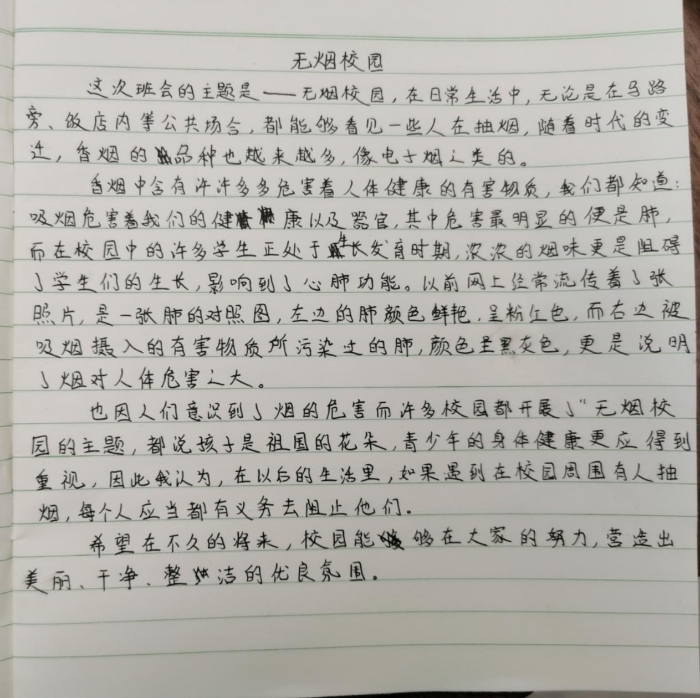 无烟校园
这次班会的主题是——无烟校园，在日常生活中，无论是在马路
旁、饭店内等公共场合，都能够看见一些人在抽烟，随着时代的变
迁，香烟的品种也越来越多，像电子烟之类的。
香烟中含有许许多多危害着人体健康的有害物质，我们都知道：
吸烟危害着我们的健康以及器官，其中危害最明显的便是肺，
而在校园中的许多学生正处于生长发育时期，浓浓的烟味更是阻碍
了学生们的生长，影响到了心肺功能。以前网上经常流传着了张
照片，是一张肺的对照图，左边的肺颜色鲜艳，呈粉红色，而右边被
吸烟摄入的有害物质所污染过的肺，颜色呈黑灰色，更是说明
了烟对人体危害之大。
也因人们意识到了烟的危害而许多校园都开展了“无烟校
园的主题，都说孩子是祖国的花朵，青少年的身体健康更应得到
重视，因此我认为，在以后的生活里，如果遇到在校园周围有人抽
烟，每个人应当都有义务去阻止他们。
希望在不久的将来，校园能够在大家的努力，营造出
美丽、干净、整洁的优良氛围。